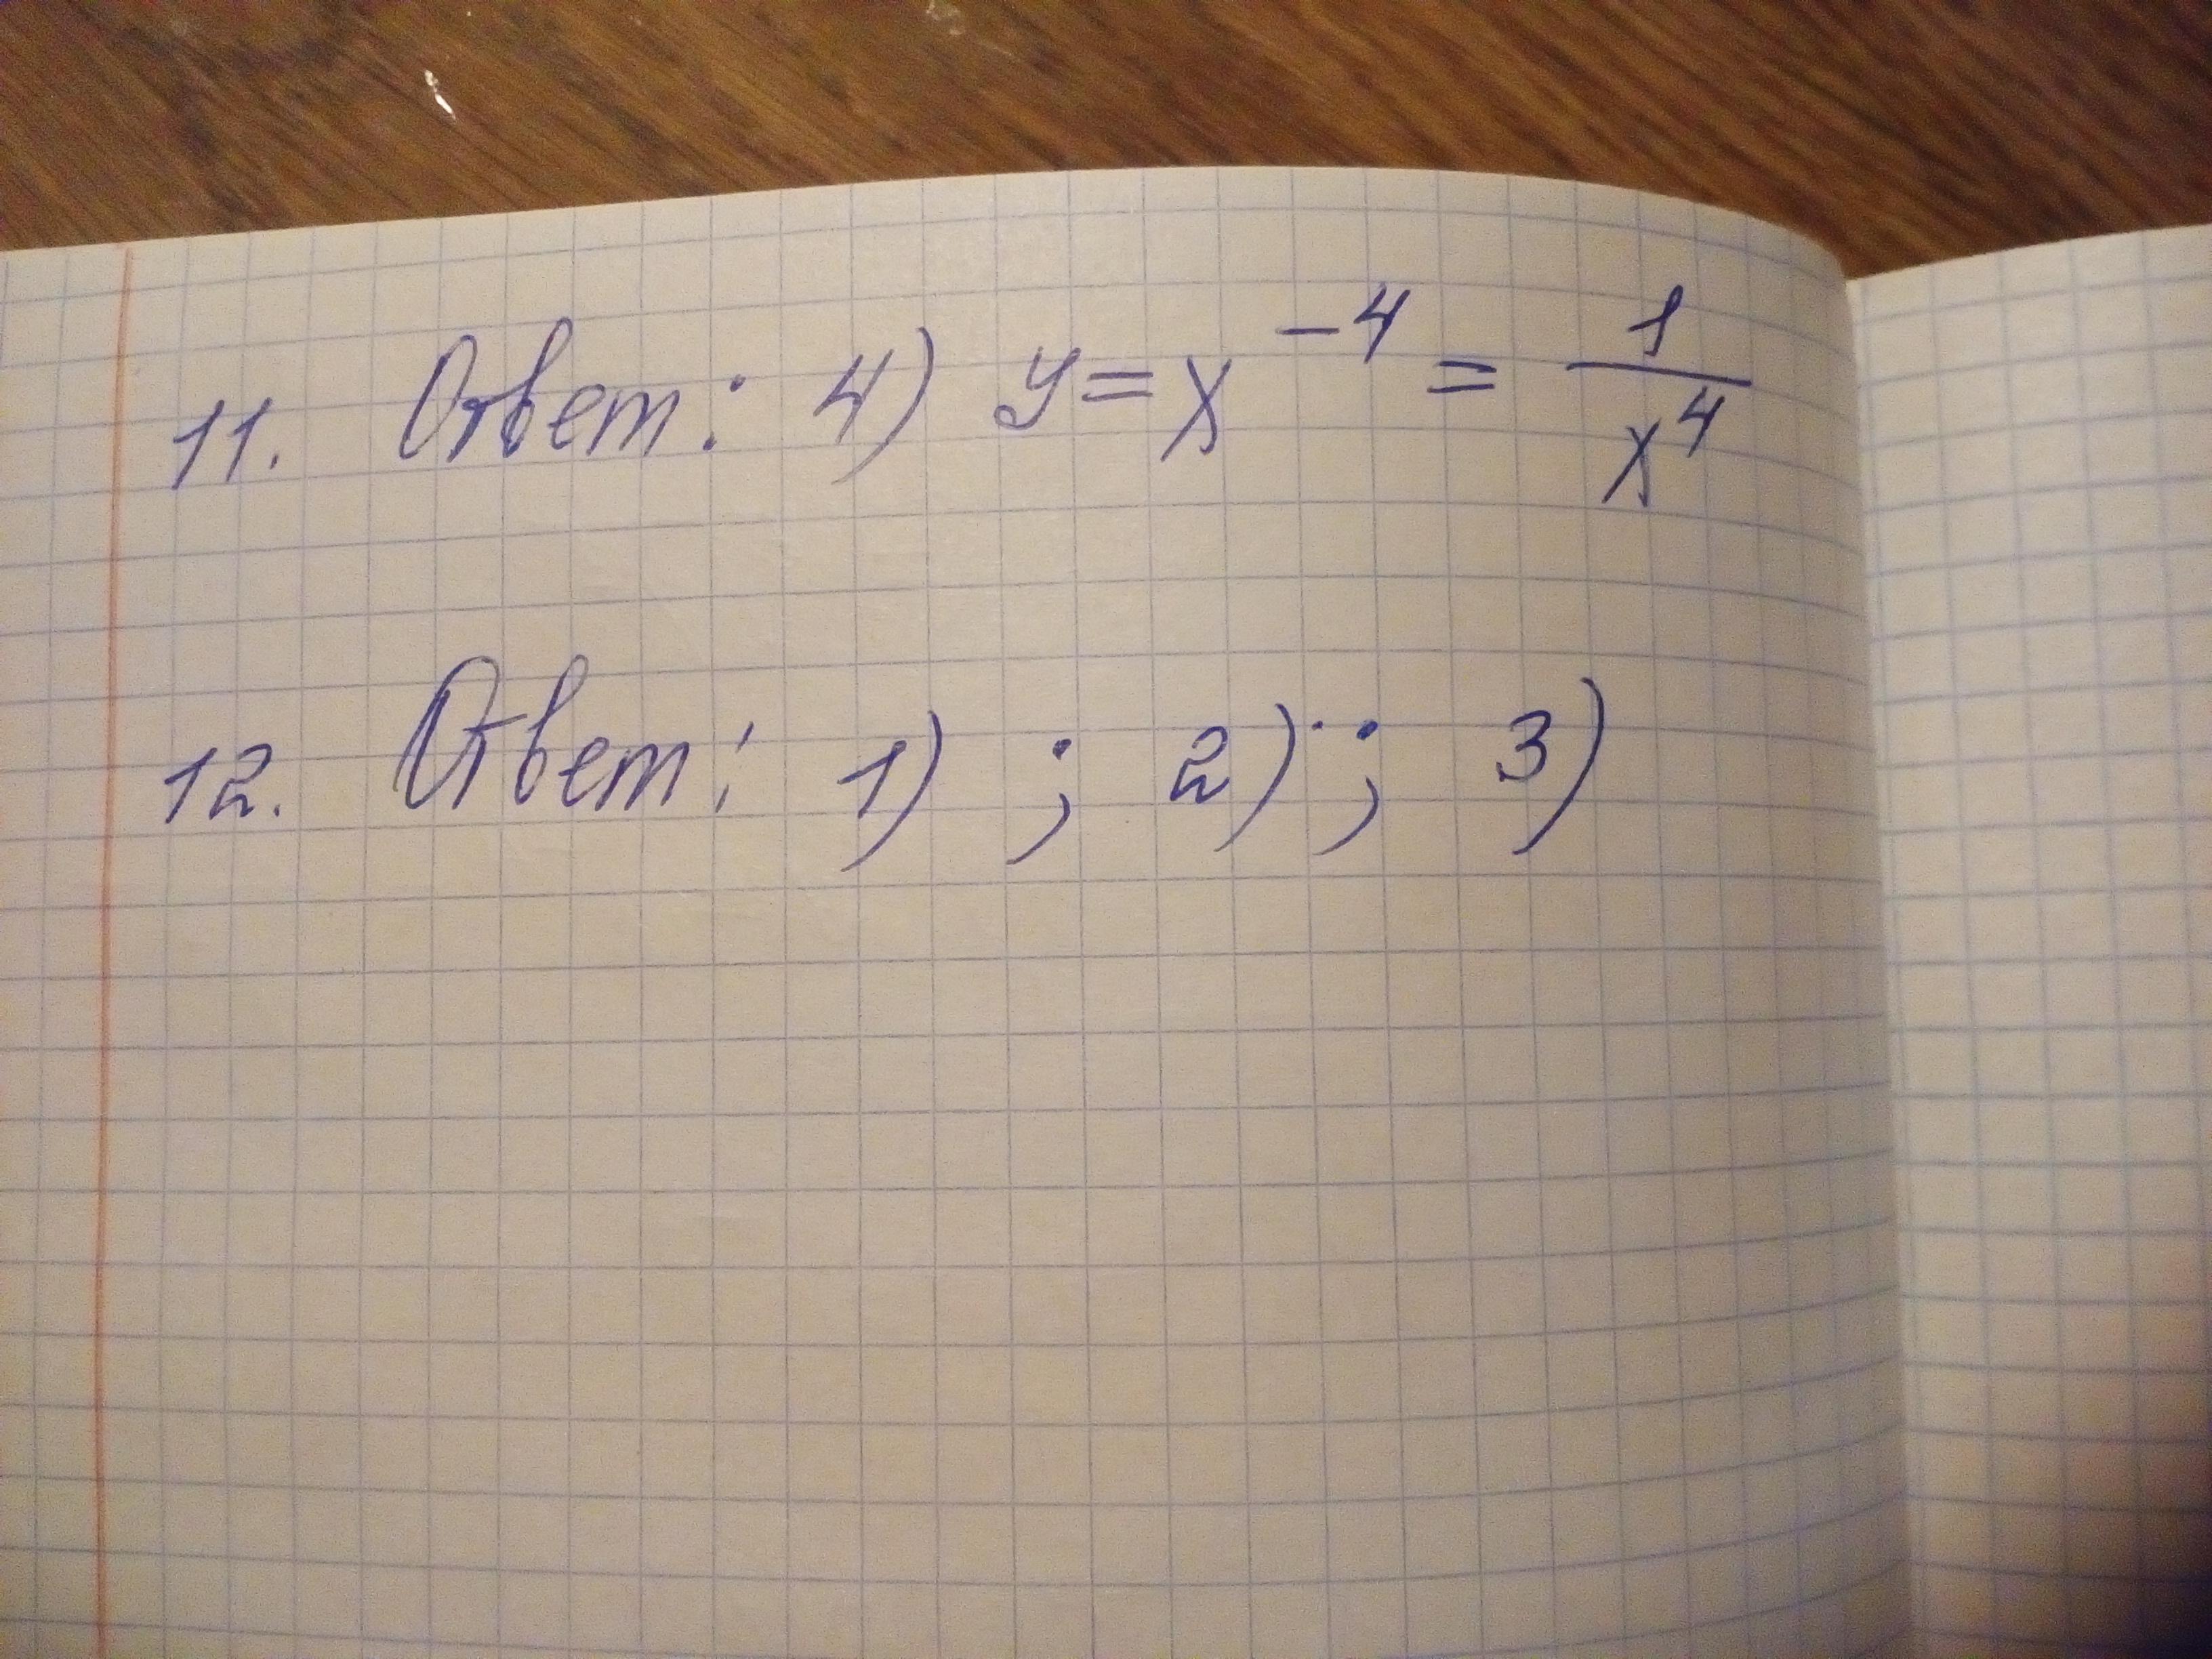 11. Ответ: 4) y = x⁻⁴ = 1/x⁴
12. Ответ: 1) ; 2) ; 3)